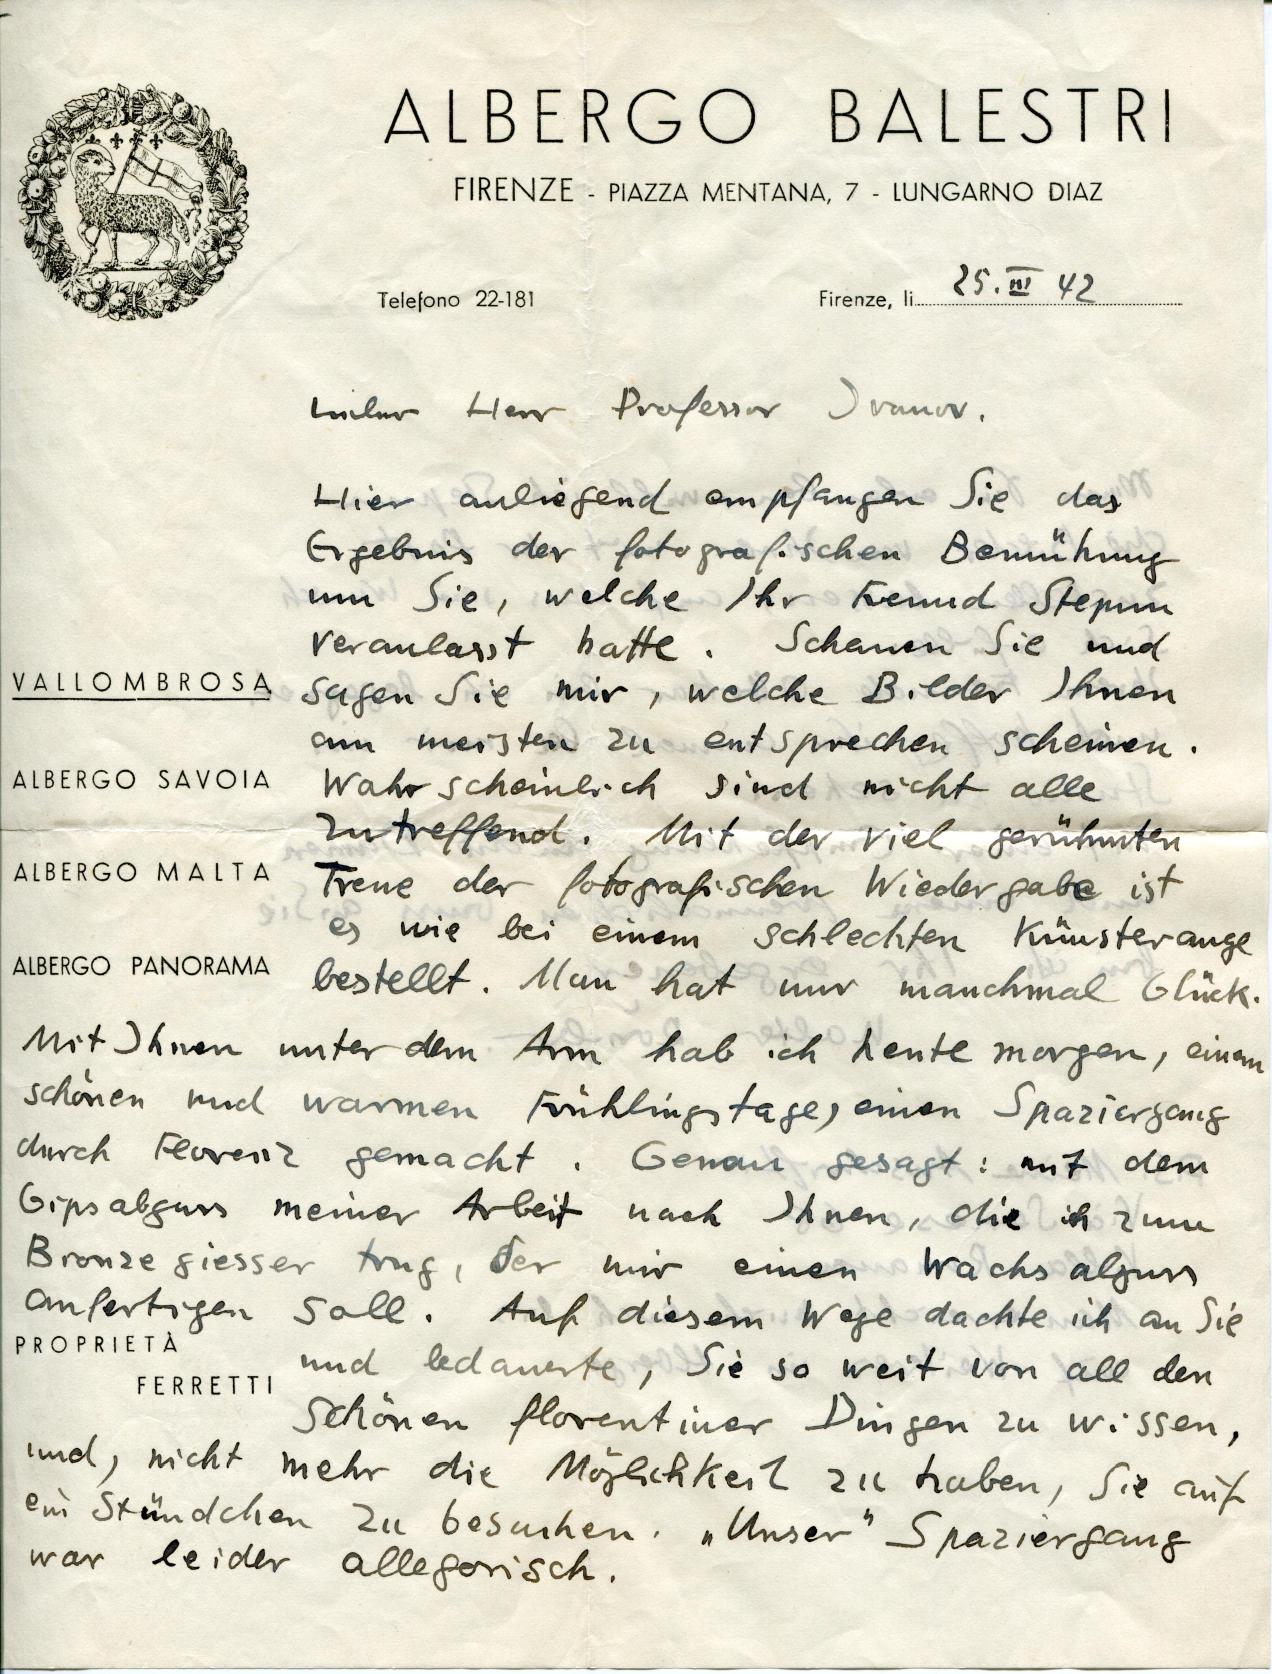 ALBERGO BALESTRI
FIRENZE - PIAZZA MENTANA, 7 - LUNGARNO DIAZ
Telefono 22-181
Firenze, li 25. III 42
Lieber Herr Professor Ivanov.
Hier anliegend empfangen Sie das
Ergebnis der fotografischen Bemühung
um Sie, welche Ihr Freund Stepun
veranlasst hatte. Schauen Sie und
VALLOMBROSA
sagen Sie mir, welche Bilder Ihnen
am meisten zu entsprechen scheinen.
ALBERGO SAVOIA
Wahrscheinlich sind nicht alle
zutreffend. Mit der viel gerühmten
ALBERGO MALTA
Treue der fotografischen Wiedergabe ist
es wie bei einem schlechten Künsterauge
ALBERGO PANORAMA
bestellt. Man hat nur manchmal Glück.
Mit Ihnen unter dem Arm hab ich heute morgen, einem
schönen und warmen Frühlingstage, einen Spaziergang
durch Florenz gemacht. Genau gesagt: mit dem
Gipsabguss meiner Arbeit nach Ihnen, die ich zum
Bronzegiesser trug, der mir einen Wachsabguss
anfertigen soll. Auf diesem Wege dachte ich an Sie
PROPRIETÀ
FERRETTI
und bedauerte, Sie so weit von all den
Schönen florentiner Dingen zu wissen,
und, nicht mehr die Möglichkeit zu haben, Sie auf
ein Stündchen zu besuchen. „Unser" Spaziergang
war leider allegorisch.